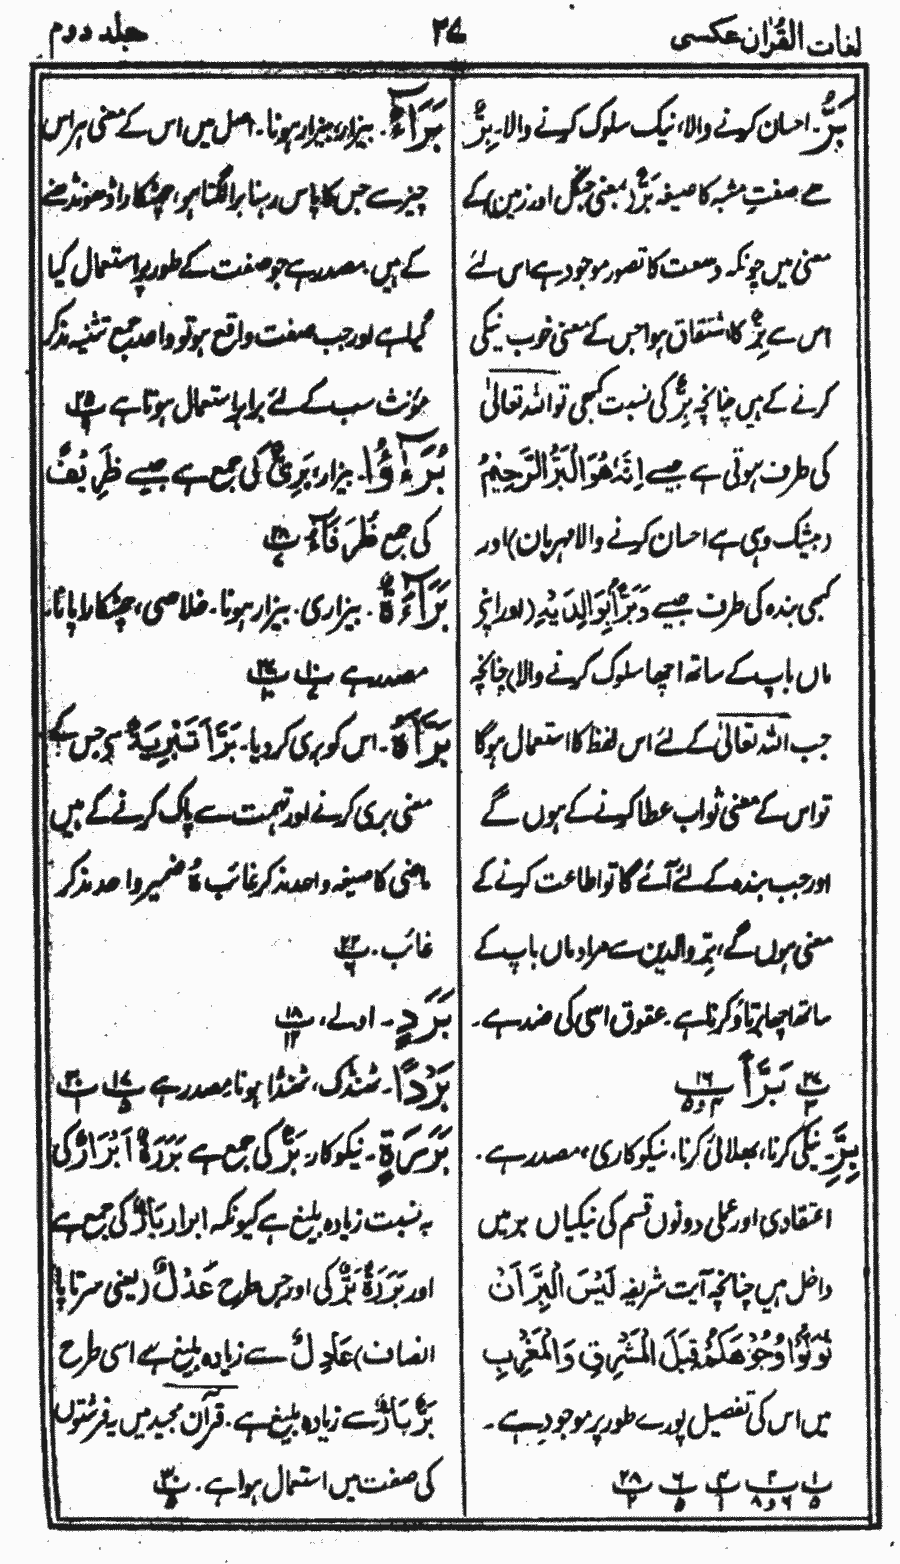 لغات القرآن عکسی
۲۷
جلد دوم
بَرٌّ۔ احسان کرنے والا، نیک سلوک کرنے والا۔ بِرٌّ
سے صفتِ مشبہ کا صیغہ بَرٌّ (بمعنی جنگل اور زمین) کے
معنی میں چونکہ وسعت کا تصور موجود ہے اس لئے
اس سے بِرٌّ کا اشتقاق ہوا جس کے معنی خوب نیکی
کرنے کے ہیں چنانچہ بِرٌّ کی نسبت کبھی تو اللہ تعالیٰ
کی طرف ہوتی ہے جیسے اِنَّہٗ ھُوَ الْبَرُّ الرَّحِیْمُ
(بیشک وہی ہے احسان کرنے والا مہربان) اور
کبھی بندہ کی طرف جیسے وَبَرًّا بِوَالِدَیْہِ (اور اپنی
ماں باپ کے ساتھ اچھا سلوک کرنے والا) چنانچہ
جب اللہ تعالیٰ کے لئے اس لفظ کا استعمال ہوگا
تو اس کے معنی ثواب عطا کرنے کے ہوں گے
اور جب بندہ کے لئے آئے گا تو اطاعت کرنے کے
معنی ہوں گے، برِّ والدین سے مراد ماں باپ کے
ساتھ اچھا برتاؤ کرنا ہے۔ عقوق اسی کی ضد ہے۔
۲۷ ۳ بَرًّا ۱۶ ۴ و ۵
بِرٌّ۔ نیکی کرنا، بھلائی کرنا۔ نیکوکاری، مصدر ہے۔
اعتقادی اور عملی دونوں قسم کی نیکیاں بر میں
داخل ہیں چنانچہ آیت شریفہ لَیْسَ الْبِرَّ اَنْ
تُوَلُّوْا وُجُوْھَکُمْ قِبَلَ الْمَشْرِقِ وَالْمَغْرِبِ
میں اس کی تفصیل پورے طور پر موجود ہے۔
۱ ۵ ۲ ۶ و ۸ ۴ ۱ ۶ ۵ ۲۸ ۲
بَرَآءٌ۔ بیزار، بیزار ہونا۔ اصل میں اس کے معنی ہر اس
چیز سے جس کا پاس رہنا برا لگتا ہو، چھٹکارا ڈھونڈھنے
کے ہیں۔ مصدر ہے جو صفت کے طور پر استعمال کیا
گیا ہے اور جب صفت واقع ہو تو واحد جمع تثنیہ مذکر
مؤنث سب کے لئے برابر استعمال ہوتا ہے ۲۵ ۹
بُرَءٰٓؤُا۔ بیزار، بَرِیْءٌ کی جمع ہے جیسے ظَرِیْفٌ
کی جمع ظُرَفَآءُ ۲۸ ۷
بَرَآءَۃٌ۔ بیزاری۔ بیزار ہونا۔ خلاصی، چھٹکارا پانا،
مصدر ہے ۱۰ ۷ ۲۷ ۱۰
بَرَّاَہٗ۔ اس کو بری کر دیا۔ بَرَّاَ تَبْرِیَۃٌ سے جس کے
معنی بری کرنے اور تہمت سے پاک کرنے کے ہیں
ماضی کا صیغہ واحد مذکر غائب ہٗ ضمیر واحد مذکر
غائب۔ ۲۲ ۶
بَرَدٍ۔ اولے، ۱۸ ۱۲
بَرْدًا۔ ٹھنڈک، ٹھنڈا ہونا۔ مصدر ہے ۱۷ ۵ ۳۰ ۱
بَرَرَۃٍ۔ نیکوکار۔ بَرٌّ کی جمع ہے بَرَرَۃٌ اَبْرَارٌ کی
بہ نسبت زیادہ بلیغ ہے کیونکہ ابرار بَارٌّ کی جمع ہے
اور بَرَرَۃٌ بَرٌّ کی اور جس طرح عَدْلٌ (یعنی سرتا پا
انصاف) عَادِلٌ سے زیادہ بلیغ ہے اسی طرح
بَرٌّ بَارٌّ سے زیادہ بلیغ ہے۔ قرآن مجید میں یہ فرشتوں
کی صفت میں استعمال ہوا ہے۔ ۳۰ ۵